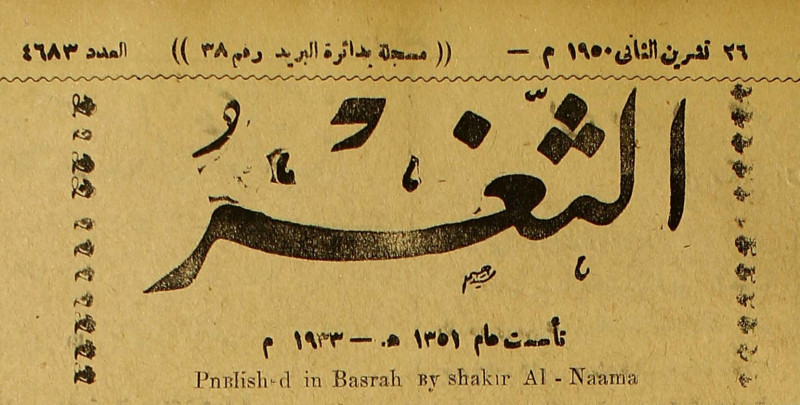 ٢٦ تشرين الثاني ١٩٥٠ م — (( مسجلة بدائرة البريد رقم ٣٨ )) العدد ٤٦٨٣
الثغر
تأسست عام ١٣٥١ هـ — ١٩٣٣ م
Published in Basrah By shakir Al - Naama